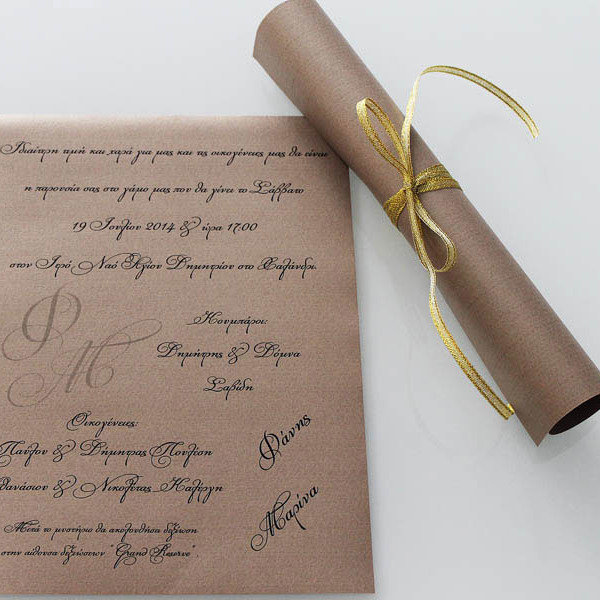 Ιδιαίτερη τιμή και χαρά για μας και τις οικογένειες μας θα είναι
η παρουσία σας στο γάμο μας που θα γίνει το Σάββατο
19 Ιουλίου 2014 & ώρα 17.00
στον Ιερό Ναό Αγίου Δημητρίου στο Χαλάνδρι.
Φ
Μ
Κουμπάροι:
Δημήτρης & Δόμνα
Σαβίδη
Οικογένειες:
Παύλου & Δήμητρας Πουλίου
Θανάσιου & Νικολέτας Καλέργη
Φάνης
Μαρίνα
Μετά το μυστήριο θα ακολουθήσει δεξίωση
στην αίθουσα δεξιώσεων "Grand Reserve".